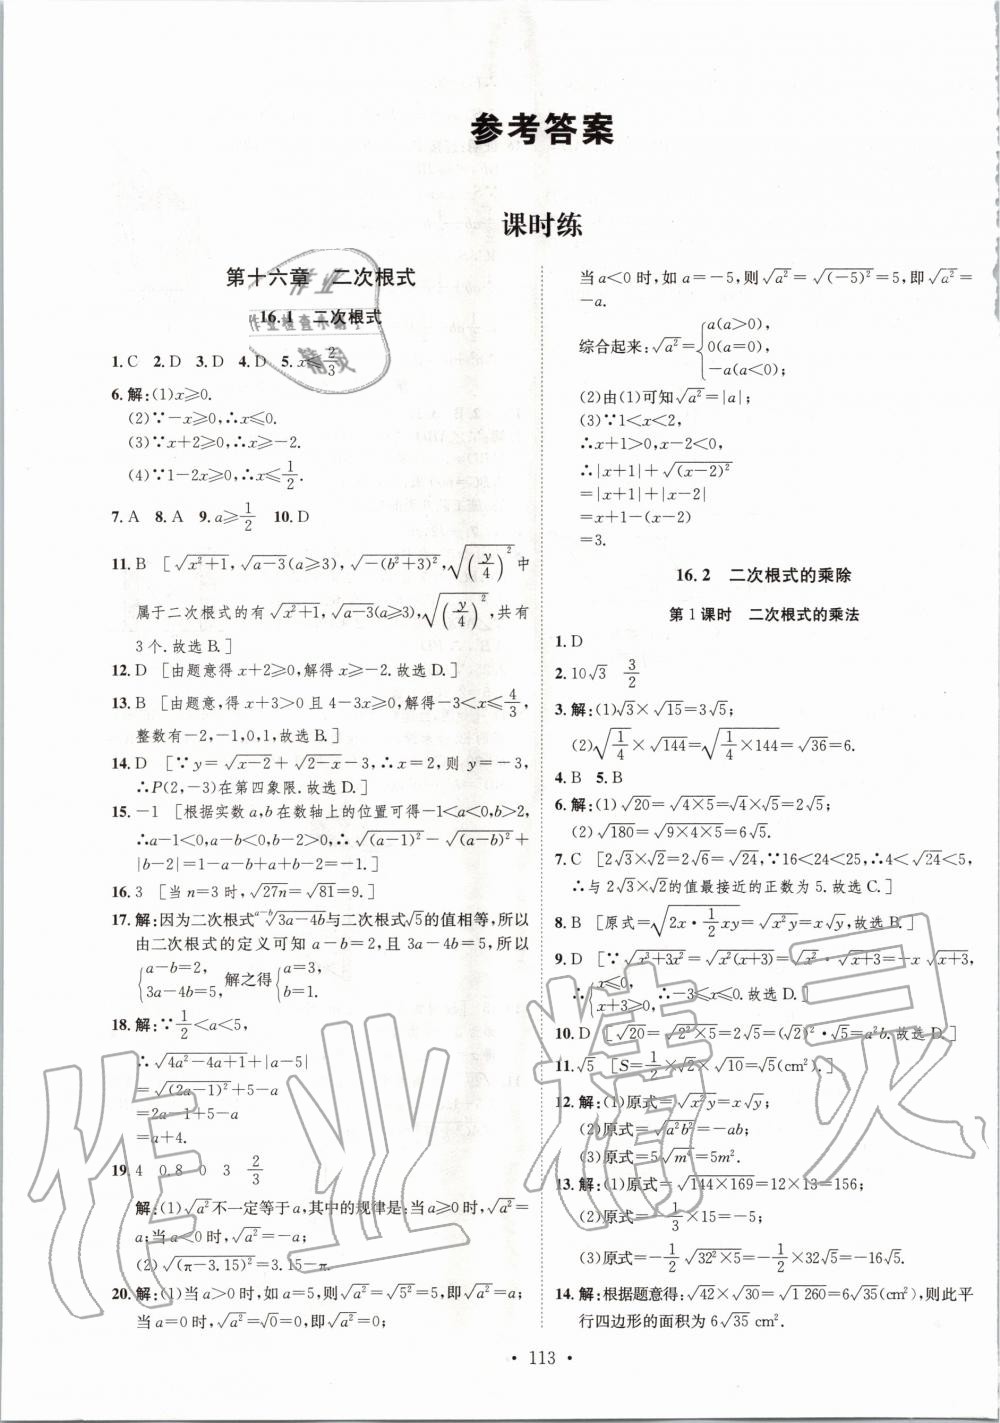 参考答案
课时练
第十六章 二次根式
16.1 二次根式
1. C 2. D 3. D 4. D 5. x≤2/3
6. 解:(1)x≥0.
(2)∵-x≥0,∴x≤0.
(3)∵x+2≥0,∴x≥-2.
(4)∵1-2x≥0,∴x≤1/2.
7. A 8. A 9. a≥1/2 10. D
11. B [√(x²+1),√(a-3)(a≥3),√(-(b²+3)²),√((y/4)²)中
属于二次根式的有√(x²+1),√(a-3)(a≥3),√((y/4)²),共有
3个.故选B.]
12. D [由题意得x+2≥0,解得x≥-2.故选D.]
13. B [由题意,得x+3>0且4-3x≥0,解得-3<x≤4/3,
整数有-2,-1,0,1,故选B.]
14. D [∵y=√(x-2)+√(2-x)-3,∴x=2,则y=-3,
∴P(2,-3)在第四象限.故选D.]
15. -1 [根据实数a,b在数轴上的位置可得-1<a<0,b>2,
∴a-1<0,a-b<0,b-2>0,∴√((a-1)²)-√((a-b)²)+
|b-2|=1-a-b+a+b-2=-1.]
16. 3 [当n=3时,√(27n)=√81=9.]
17. 解:因为二次根式 ᵃ⁻ᵇ√(3a-4b)与二次根式√5的值相等,所以
由二次根式的定义可知a-b=2,且3a-4b=5,所以
{a-b=2, 3a-4b=5, 解之得{a=3, b=1.
18. 解:∵1/2<a<5,
∴√(4a²-4a+1)+|a-5|
=√((2a-1)²)+5-a
=2a-1+5-a
=a+4.
19. 4 0.8 0 3 2/3
解:(1)√(a²)不一定等于a,其中的规律是:当a≥0时,√(a²)=
a;当a<0时,√(a²)=-a;
(2)√((π-3.15)²)=3.15-π.
20. 解:(1)当a>0时,如a=5,则√(a²)=√(5²)=5,即√(a²)=a;
当a=0时,√(a²)=√0=0,即√(a²)=0;
当a<0时,如a=-5,则√(a²)=√((-5)²)=5,即√(a²)=
-a.
综合起来:√(a²)={a(a>0), 0(a=0), -a(a<0);
(2)由(1)可知√(a²)=|a|;
(3)∵1<x<2,
∴x+1>0,x-2<0,
∴|x+1|+√((x-2)²)
=|x+1|+|x-2|
=x+1-(x-2)
=3.
16.2 二次根式的乘除
第1课时 二次根式的乘法
1. D
2. 10√3 3/2
3. 解:(1)√3×√15=3√5;
(2)√(1/4)×√144=√(1/4×144)=√36=6.
4. B 5. B
6. 解:(1)√20=√(4×5)=2√5;
(2)√180=√(9×4×5)=6√5.
7. C [2√3×√2=2√6=√24,∵16<24<25,∴4<√24<5,
∴与2√3×√2的值最接近的正数为5.故选C.]
8. B [原式=√(2x·1/2xy)=√(x²y)=x√y,故选B.]
9. D [∵√(x³+3x²)=√(x²(x+3))=√(x²)·√(x+3)=-x√(x+3),
∴{x≤0, x+3≥0, ∴-3≤x≤0.故选D.]
10. D [√20=√(2²×5)=2√5=(√2)²·√5=a²b.故选D.]
11. √5 [S=1/2×√2×√10=√5(cm²).]
12. 解:(1)原式=√(x²y)=x√y;
(2)原式=√(a²b²)=-ab;
(3)原式=5√(m⁴)=5m².
13. 解:(1)原式=√(144×169)=12×13=156;
(2)原式=-1/3×15=-5;
(3)原式=-1/2√(32²×5)=-1/2×32√5=-16√5.
14. 解:根据题意得:√42×√30=√1 260=6√35(cm²),则此平
行四边形的面积为6√35 cm².
• 113 •
作业精灵
作业
作业检查小助手
精灵